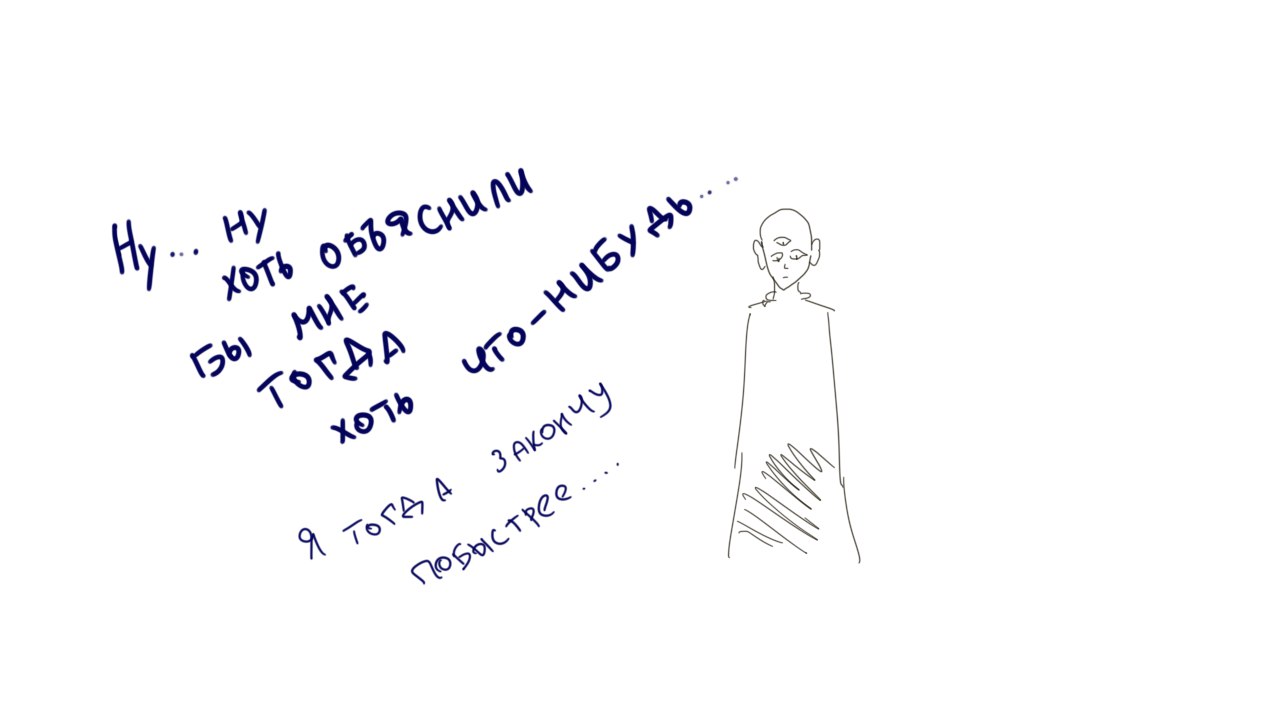 Ну... ну
хоть объяснили
бы мне
тогда
хоть что-нибудь....
я тогда закончу
побыстрее....